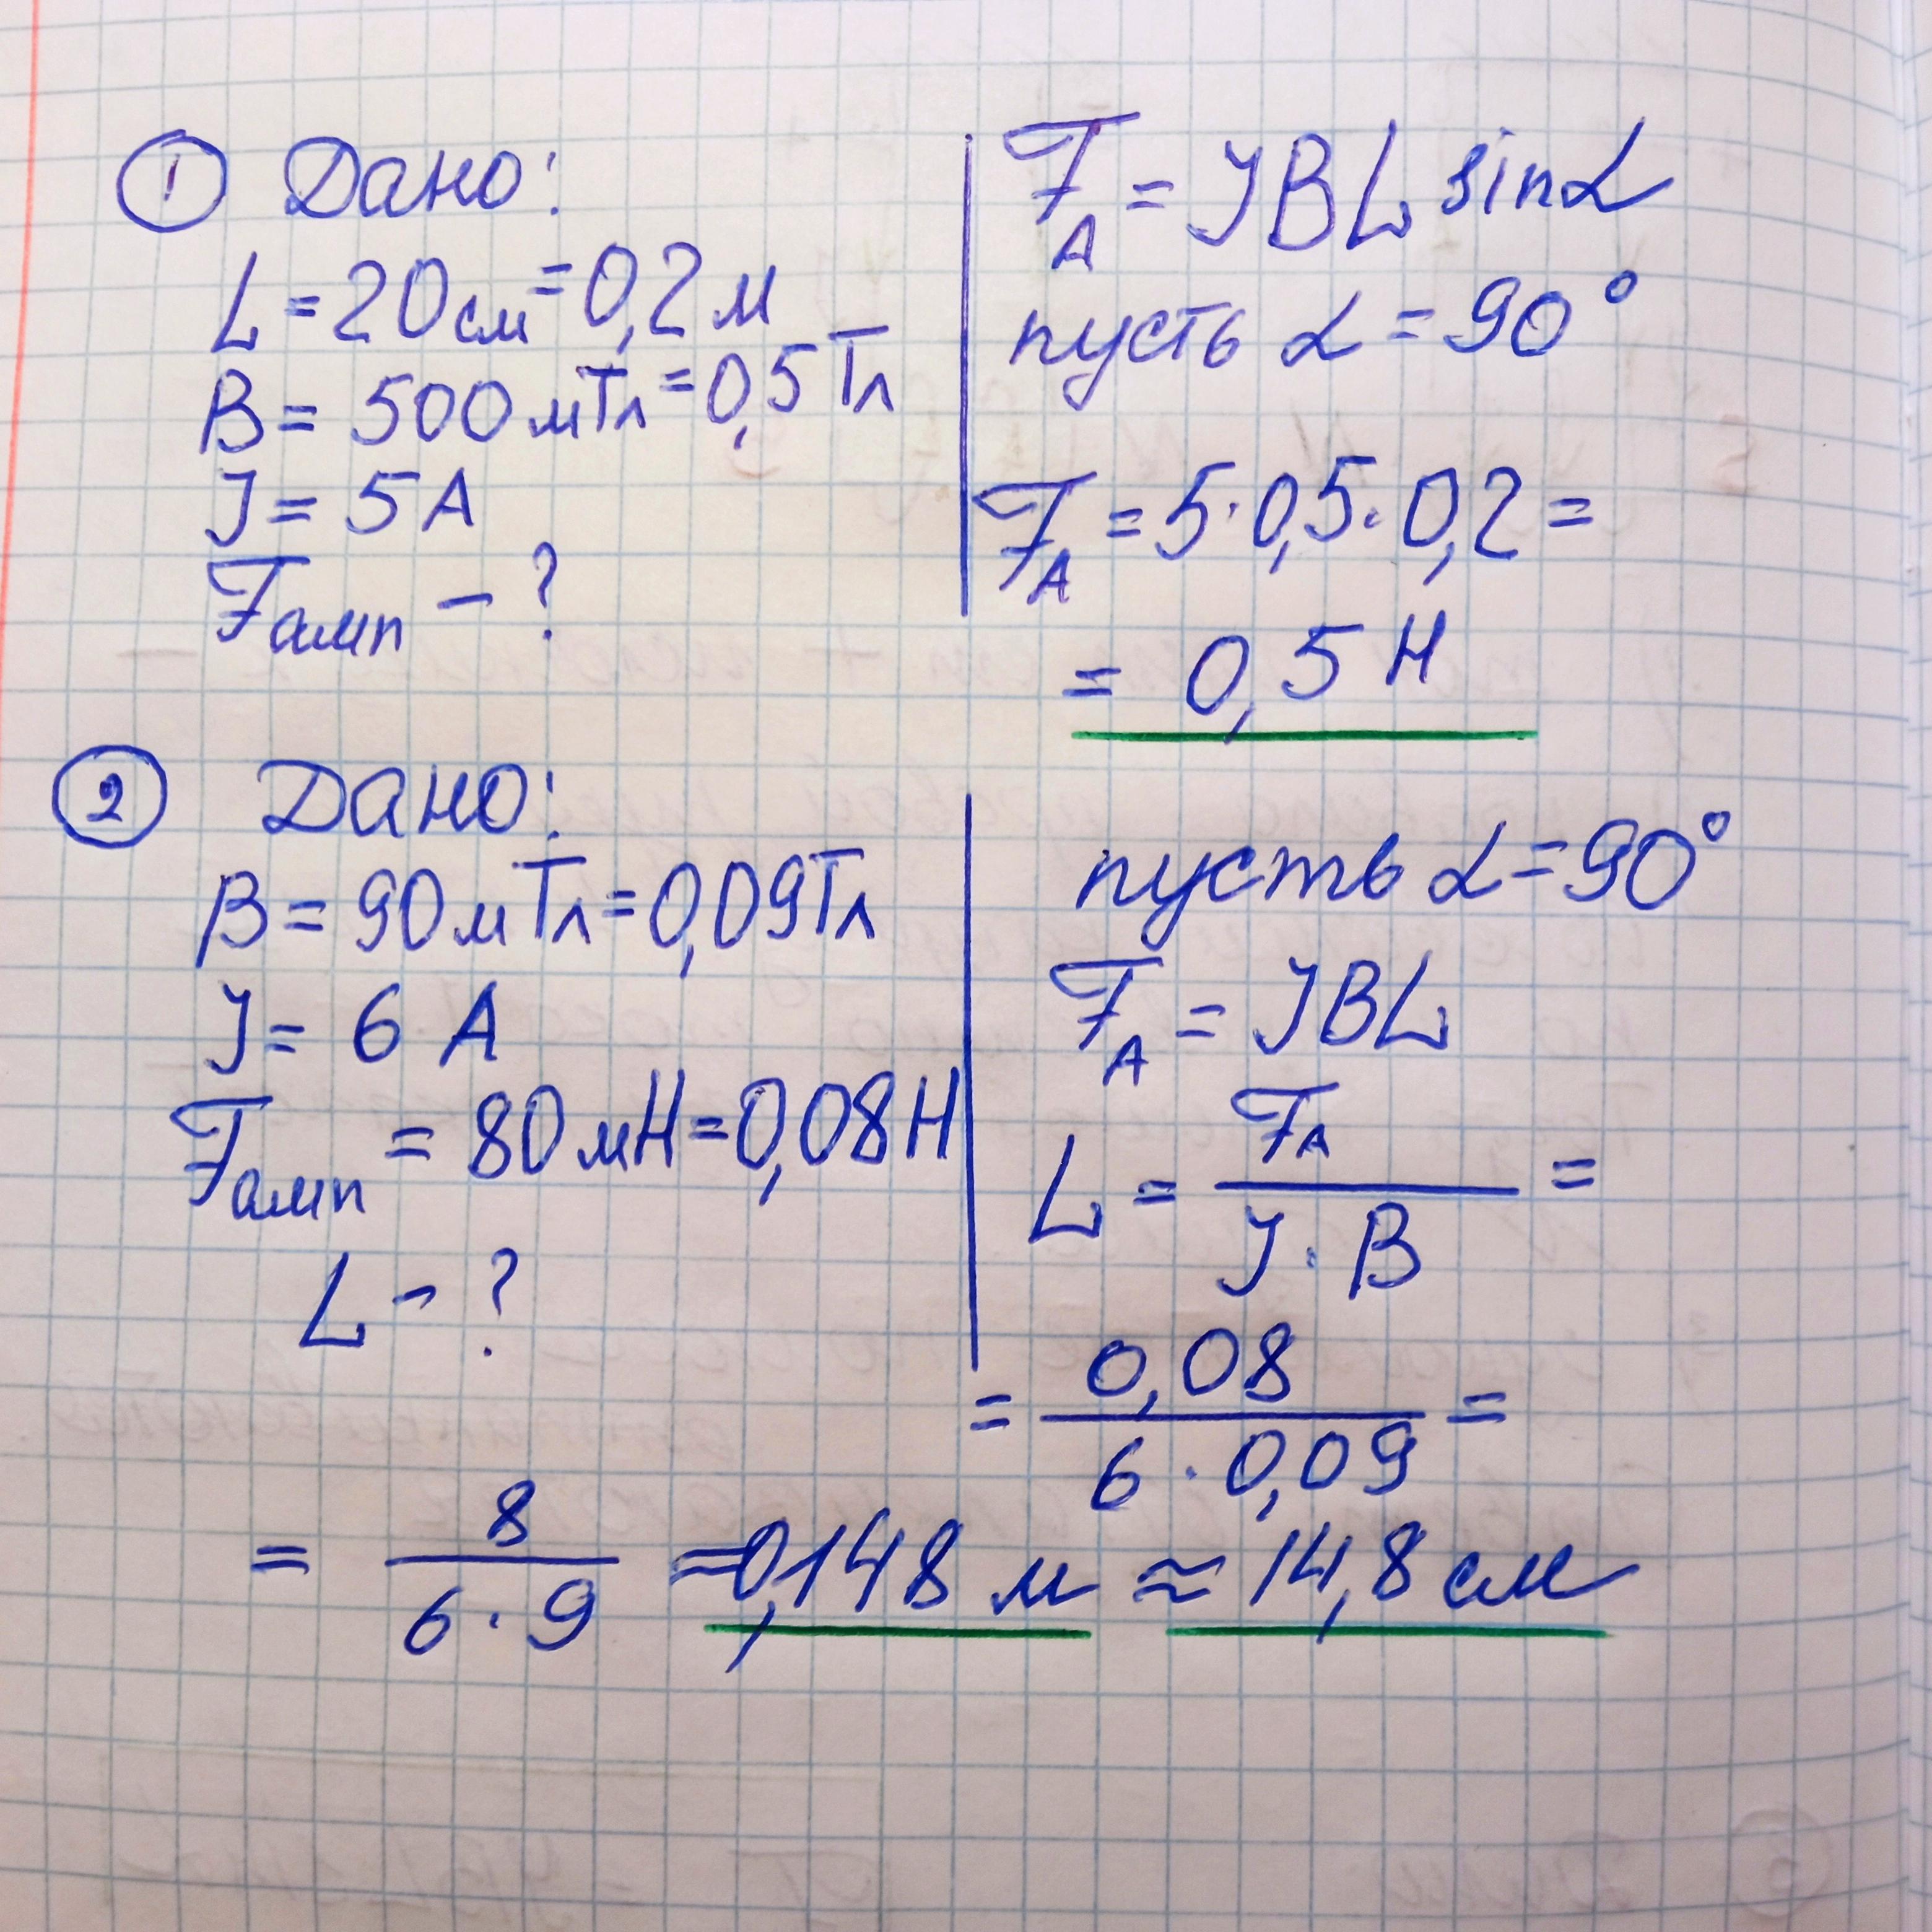 ① Дано:
L = 20 см = 0,2 м
B = 500 мТл = 0,5 Тл
J = 5 А
Fамп - ?
F_A = JBL sinα
пусть α = 90°
F_A = 5·0,5·0,2 =
= 0,5 Н
② Дано:
B = 90 мТл = 0,09 Тл
J = 6 А
Fамп = 80 мН = 0,08 Н
L - ?
пусть α = 90°
F_A = JBL
L = F_A / J·B =
= 0,08 / 6·0,09 =
= 8 / 6·9 ≈ 0,148 м ≈ 14,8 см